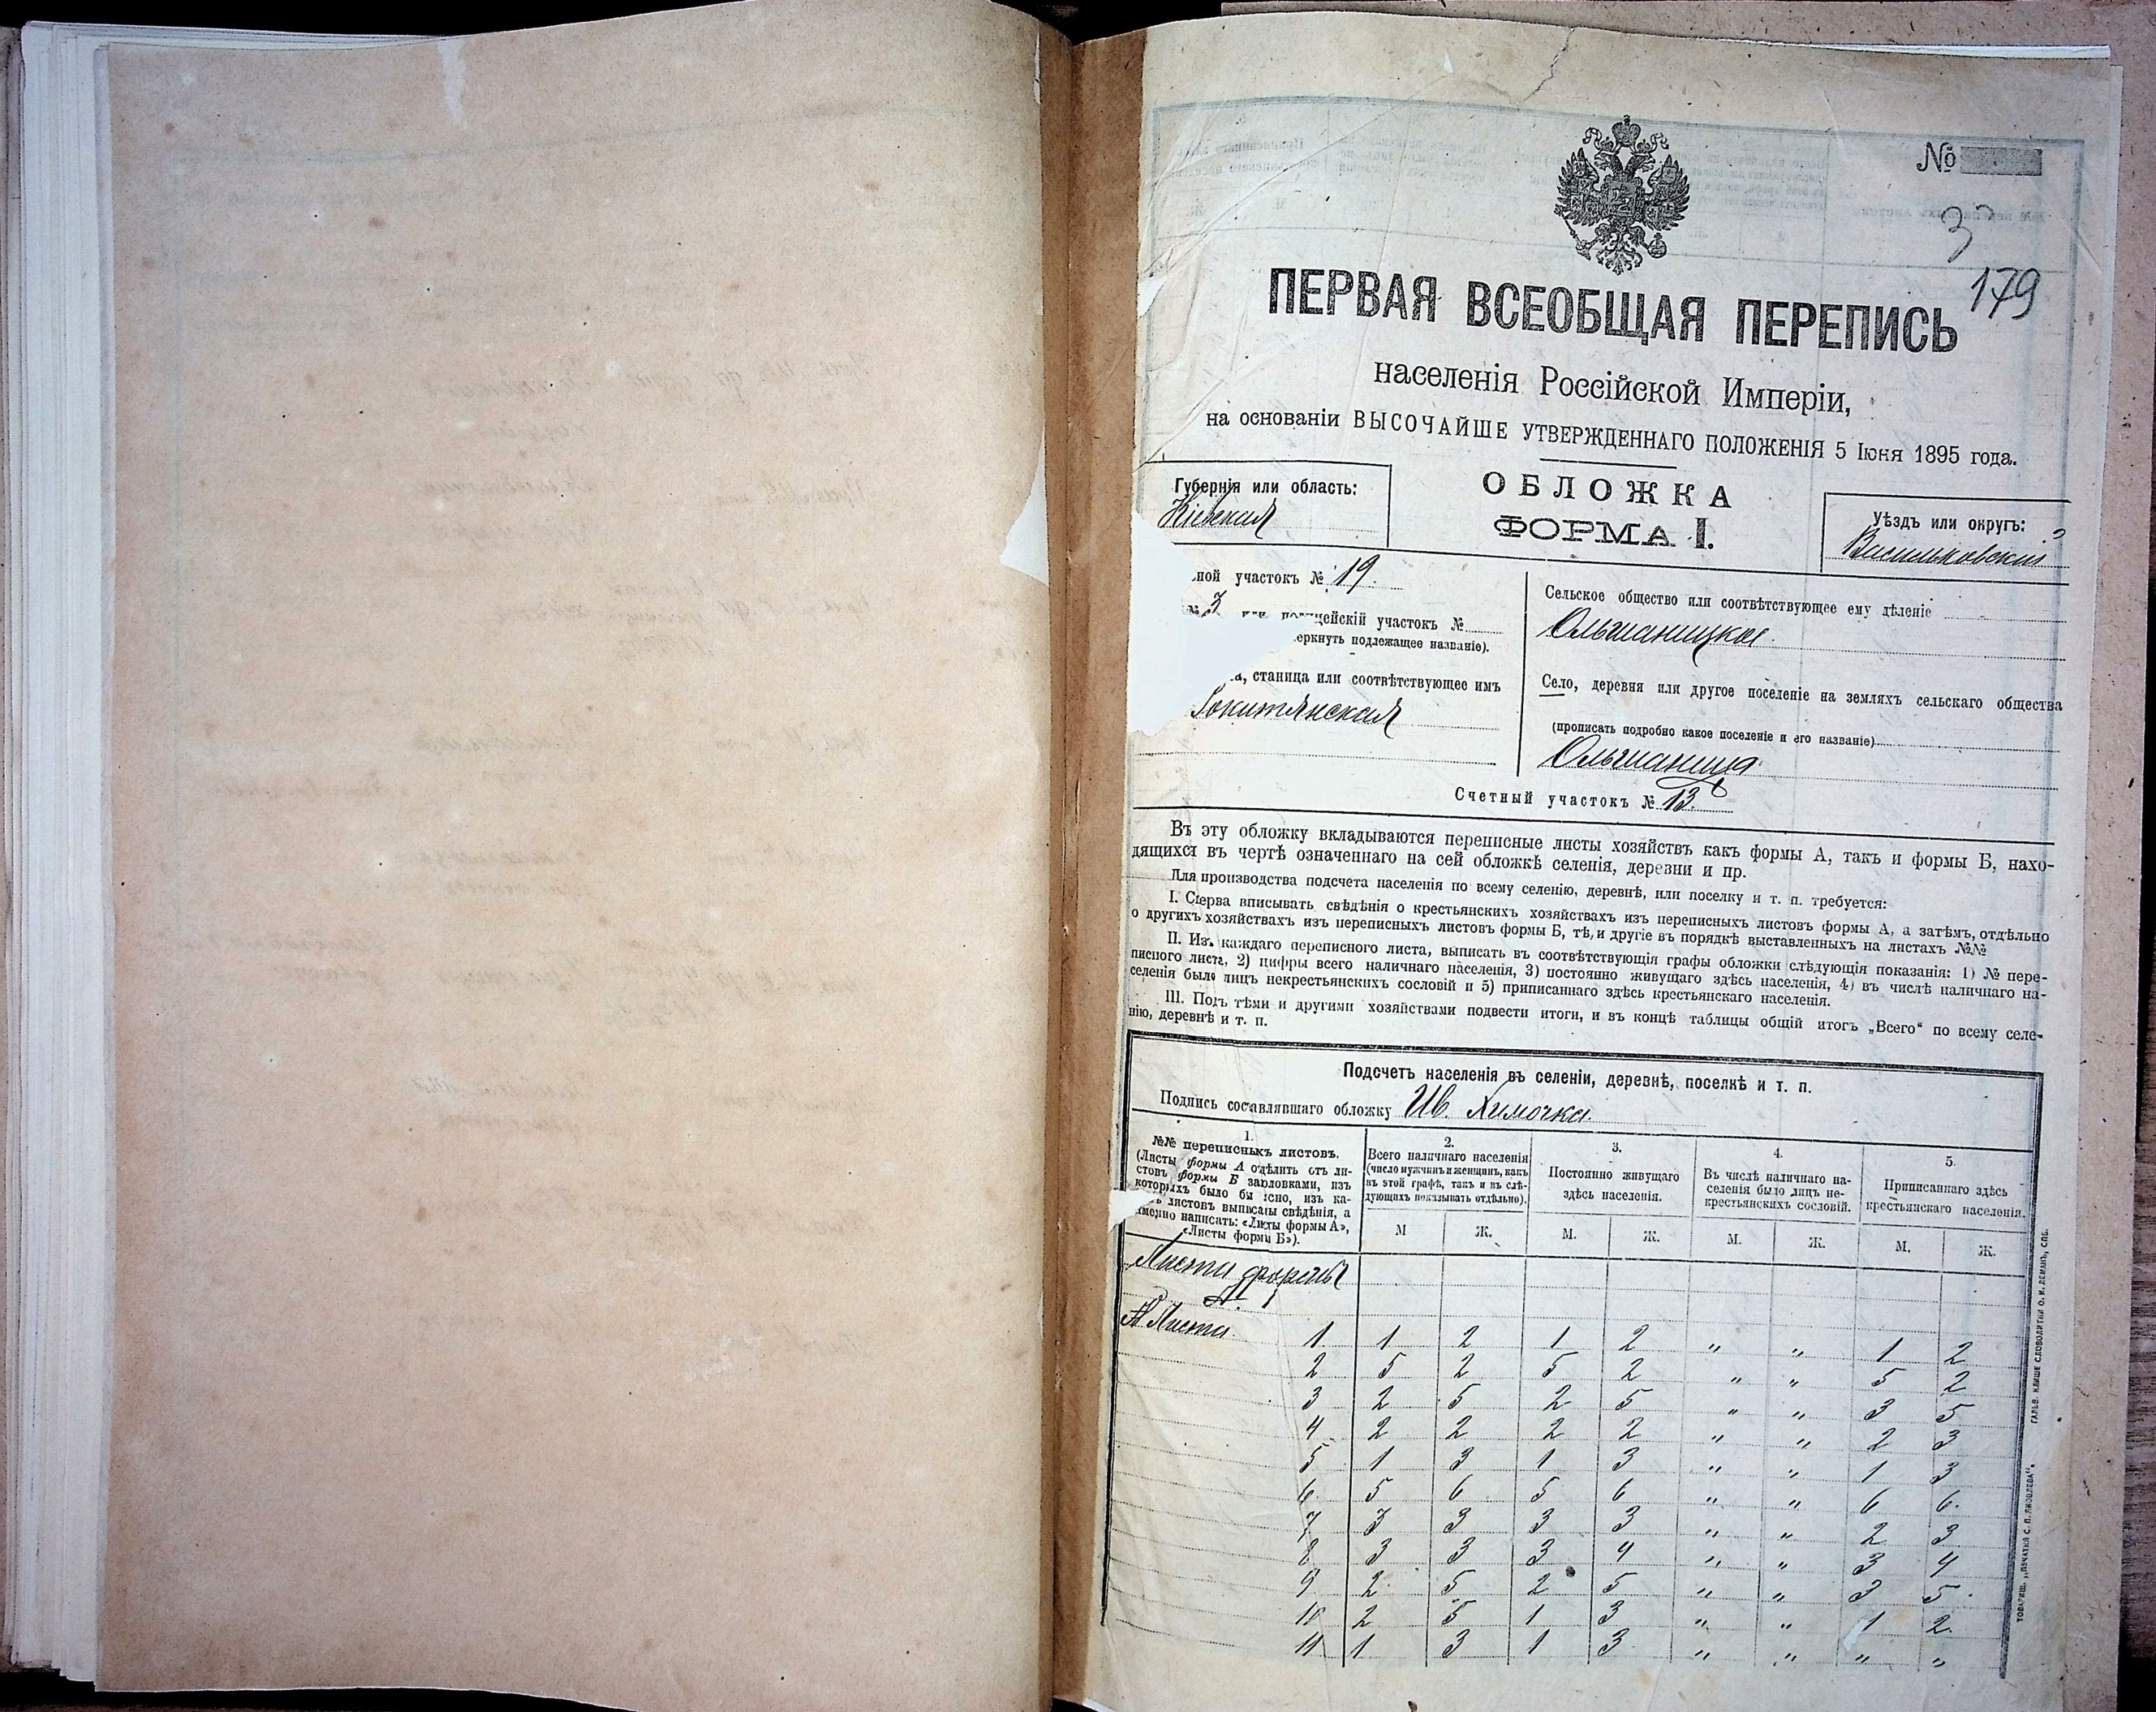 №
3
179
ПЕРВАЯ ВСЕОБЩАЯ ПЕРЕПИСЬ
населенія Россійской Имперіи,
на основаніи ВЫСОЧАЙШЕ УТВЕРЖДЕННАГО ПОЛОЖЕНІЯ 5 Іюня 1895 года.
Губернія или область:
Кіевская
ОБЛОЖКА
ФОРМА I.
Уѣздъ или округъ:
Васильковскій
ной участокъ № 19.
№ 3 или полицейскій участокъ №
еркнуть подлежащее названіе).
а, станица или соотвѣтствующее имъ
Рокитянская
Сельское общество или соотвѣтствующее ему дѣленіе
Ольшаницкое
Село, деревня или другое поселеніе на земляхъ сельскаго общества
(прописать подробно какое поселеніе и его названіе)
Ольшаница
Счетный участокъ № 13
Въ эту обложку вкладываются переписные листы хозяйствъ какъ формы А, такъ и формы Б, нахо-
дящихся въ чертѣ означеннаго на сей обложкѣ селенія, деревни и пр.
Для производства подсчета населенія по всему селенію, деревнѣ, или поселку и т. п. требуется:
I. Сперва вписывать свѣдѣнія о крестьянскихъ хозяйствахъ изъ переписныхъ листовъ формы А, а затѣмъ, отдѣльно
о другихъ хозяйствахъ изъ переписныхъ листовъ формы Б, тѣ, и другіе въ порядкѣ выставленныхъ на листахъ №№
II. Изъ каждаго переписного листа, выписать въ соотвѣтствующія графы обложки слѣдующія показанія: 1) № пере-
писного листа, 2) цифры всего наличнаго населенія, 3) постоянно живущаго здѣсь населенія, 4) въ числѣ наличнаго на-
селенія было лицъ некрестьянскихъ сословій и 5) приписаннаго здѣсь крестьянскаго населенія.
III. Подъ тѣми и другими хозяйствами подвести итоги, и въ концѣ таблицы общій итогъ „Всего“ по всему селе-
нію, деревнѣ и т. п.
Подсчетъ населенія въ селеніи, деревнѣ, поселкѣ и т. п.
Подпись составлявшаго обложку Ив. Химочка.
1.
№№ переписныхъ листовъ.
(Листы формы А отдѣлить отъ ли-
стовъ формы Б заголовками, изъ
которыхъ было бы ясно, изъ ка-
ъ листовъ выписаны свѣдѣнія, а
именно написать: «Листы формы А»,
«Листы формы Б»).
2.
Всего наличнаго населенія
(число мужчинъ и женщинъ, какъ
въ этой графѣ, такъ и въ слѣ-
дующихъ показывать отдѣльно).
3.
Постоянно живущаго
здѣсь населенія.
4.
Въ числѣ наличнаго на-
селенія было лицъ не-
крестьянскихъ сословій.
5.
Приписаннаго здѣсь
крестьянскаго населенія.
М Ж. М. Ж. М. Ж. М. Ж.
Листы формы
А.
№ Листа
1 1 2 1 2 „ „ 1 2
2 5 2 5 2 „ „ 5 2
3 2 5 2 5 „ „ 3 5
4 2 2 2 2 „ „ 2 3
5 1 3 1 3 „ „ 1 3
6 5 6 5 6 „ „ 6 6.
7 3 3 3 3 „ „ 2 3
8 3 3 3 4 „ „ 3 4
9 2 5 2 5 „ „ 3 5
10 2 5 1 3 „ „ 1 2.
11 1 3 1 3 „ „ „ „
ТОВАРИЩ. „ПЕЧАТНЯ С. П. ЯКОВЛЕВА“. ГАЛЬВ. КЛИШЕ СЛОВОЛИТНИ О. И. ЛЕМАНЪ, СПБ.